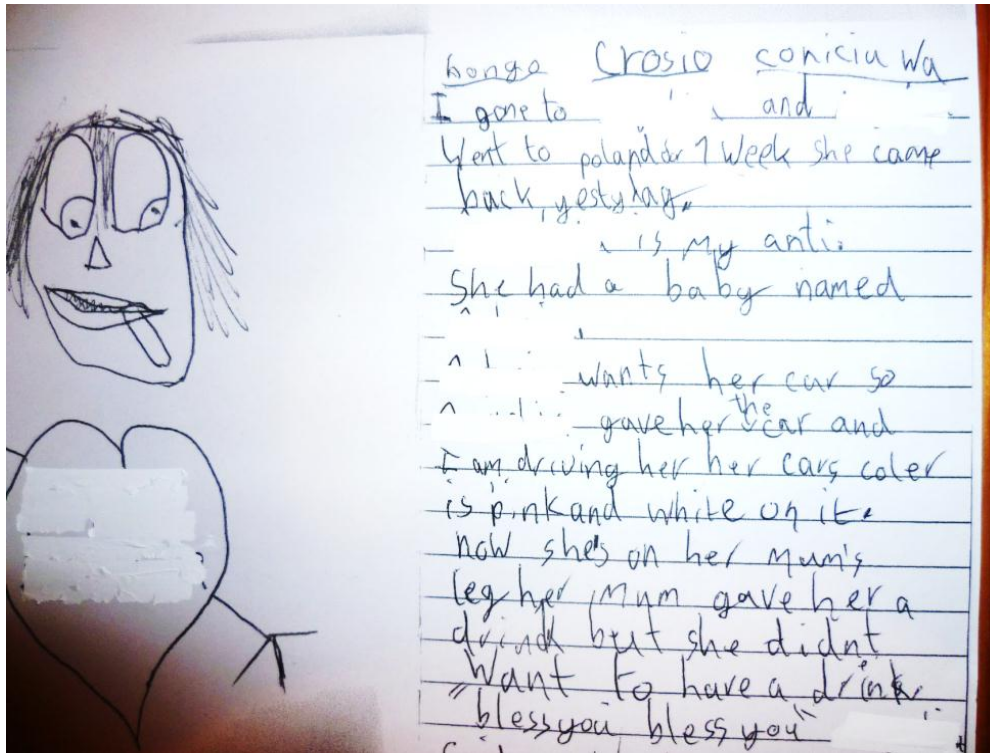 bonge Crosio coniciu wa
I gone to and
Went to poland for 1 week she came
back, yestyday.
is my anti.
She had a baby named
wants her car so
gave her the car and
I am driving her her cars coler
is pink and white on it.
now she's on her Mum's
leg her Mum gave her a
drink but she didnt
Want to have a drink
"bless you bless you"